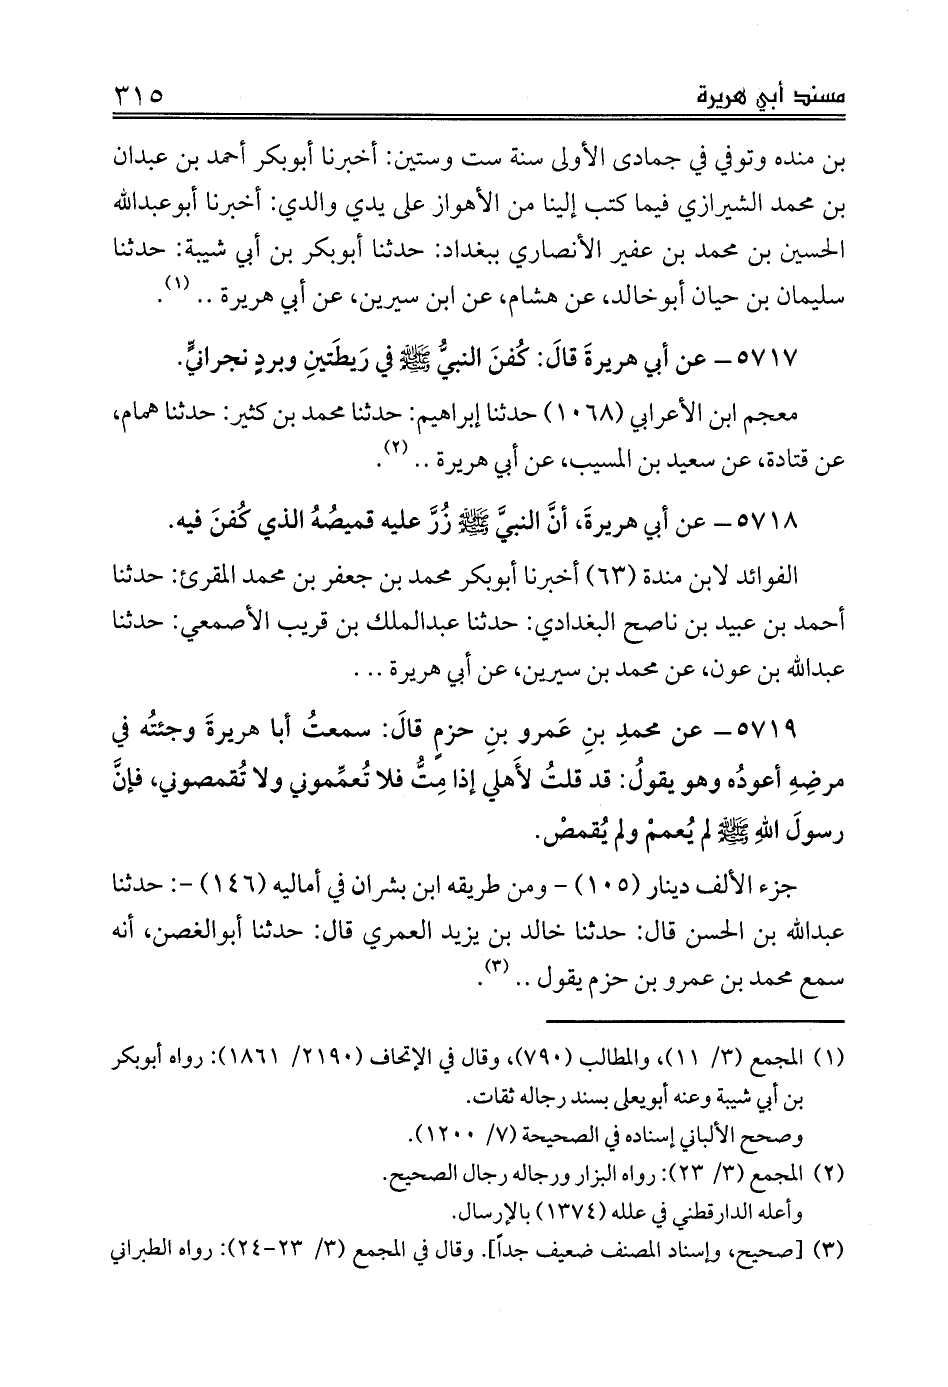 مسند أبي هريرة ٣١٥
بن منده وتوفي في جمادى الأولى سنة ست وستين: أخبرنا أبوبكر أحمد بن عبدان
بن محمد الشيرازي فيما كتب إلينا من الأهواز على يدي والدي: أخبرنا أبوعبدالله
الحسين بن محمد بن عفير الأنصاري ببغداد: حدثنا أبوبكر بن أبي شيبة: حدثنا
سليمان بن حيان أبوخالد، عن هشام، عن ابن سيرين، عن أبي هريرة .. (١).
٥٧١٧- عن أبي هريرةَ قالَ: كُفنَ النبيُّ ﷺ في رَيطَتَينِ وبردٍ نجرانيٍّ.
معجم ابن الأعرابي (١٠٦٨) حدثنا إبراهيم: حدثنا محمد بن كثير: حدثنا همام،
عن قتادة، عن سعيد بن المسيب، عن أبي هريرة .. (٢).
٥٧١٨- عن أبي هريرةَ، أنَّ النبيَّ ﷺ زُرَّ عليه قميصُهُ الذي كُفنَ فيه.
الفوائد لابن مندة (٦٣) أخبرنا أبوبكر محمد بن جعفر بن محمد المقرئ: حدثنا
أحمد بن عبيد بن ناصح البغدادي: حدثنا عبدالملك بن قريب الأصمعي: حدثنا
عبدالله بن عون، عن محمد بن سيرين، عن أبي هريرة ...
٥٧١٩- عن محمدِ بنِ عَمرو بنِ حزمٍ قالَ: سمعتُ أبا هريرةَ وجئتُه في
مرضِهِ أعودُه وهو يقولُ: قد قلتُ لأَهلي إذا مِتُّ فلا تُعمِّموني ولا تُقمصوني، فإنَّ
رسولَ اللهِ ﷺ لم يُعممْ ولم يُقمصْ.
جزء الألف دينار (١٠٥) - ومن طريقه ابن بشران في أماليه (١٤٦) -: حدثنا
عبدالله بن الحسن قال: حدثنا خالد بن يزيد العمري قال: حدثنا أبوالغصن، أنه
سمع محمد بن عمرو بن حزم يقول .. (٣).
(١) المجمع (٣/ ١١)، والمطالب (٧٩٠)، وقال في الإتحاف (٢١٩٠/ ١٨٦١): رواه أبوبكر
بن أبي شيبة وعنه أبويعلى بسند رجاله ثقات.
وصحح الألباني إسناده في الصحيحة (٧/ ١٢٠٠).
(٢) المجمع (٣/ ٢٣): رواه البزار ورجاله رجال الصحيح.
وأعله الدارقطني في علله (١٣٧٤) بالإرسال.
(٣) [صحيح، وإسناد المصنف ضعيف جداً]. وقال في المجمع (٣/ ٢٣-٢٤): رواه الطبراني